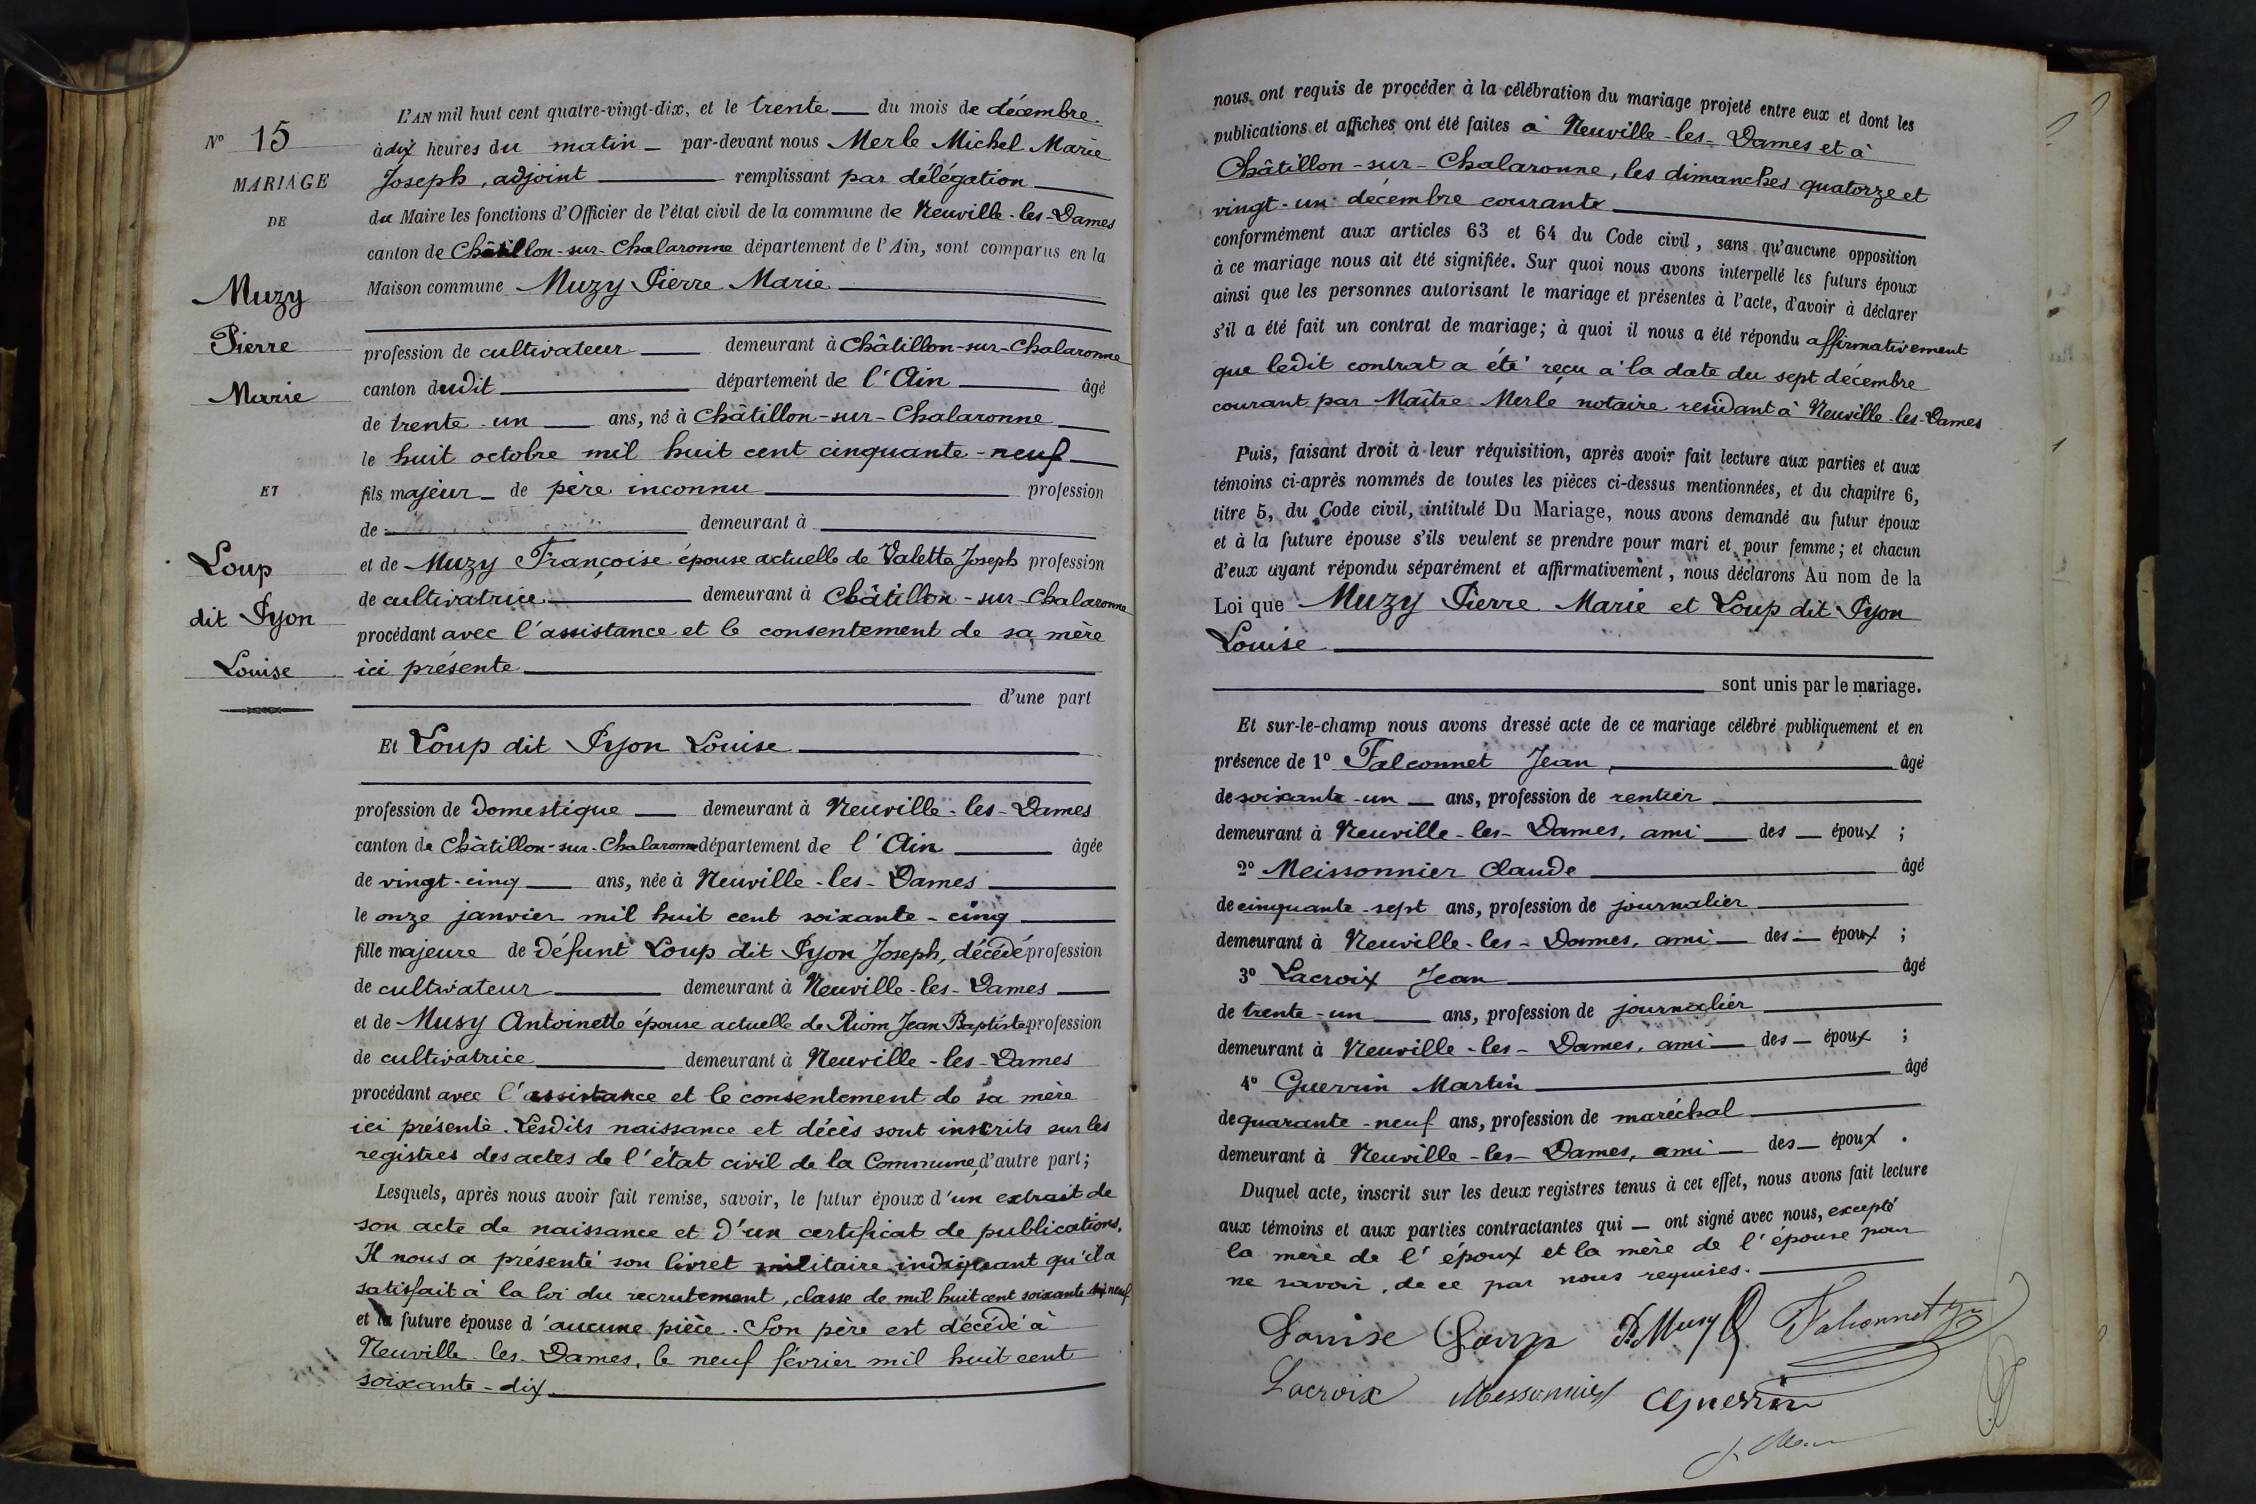 L'AN mil huit cent quatre-vingt-dix, et le trente du mois de décembre.
N° 15
à dix heures du matin par-devant nous Merle Michel Marie
MARIAGE
Joseph, adjoint remplissant par délégation
DE
du Maire les fonctions d'Officier de l'état civil de la commune de Neuville-les-Dames
canton de Châtillon-sur-Chalaronne département de l'Ain, sont comparus en la
Maison commune Muzy Pierre Marie
Muzy
Pierre
Marie
profession de cultivateur demeurant à Châtillon-sur-Chalaronne
canton dudit département de l'Ain âgé
de trente-un ans, né à Châtillon-sur-Chalaronne
le huit octobre mil huit cent cinquante-neuf
ET
fils majeur de père inconnu profession
de demeurant à
Loup
dit Pyon
Louise
et de Muzy Françoise épouse actuelle de Valette Joseph profession
de cultivatrice demeurant à Châtillon-sur-Chalaronne
procédant avec l'assistance et le consentement de sa mère
ici présente
d'une part
Et Loup dit Pyon Louise
profession de Domestique demeurant à Neuville-les-Dames
canton de Châtillon-sur-Chalaronne département de l'Ain âgée
de vingt-cinq ans, née à Neuville-les-Dames
le onze janvier mil huit cent soixante-cinq
fille majeure de défunt Loup dit Pyon Joseph, décédé profession
de cultivateur demeurant à Neuville-les-Dames
et de Musy Antoinette épouse actuelle de Riom Jean Baptiste profession
de cultivatrice demeurant à Neuville-les-Dames
procédant avec l'assistance et le consentement de sa mère
ici présente. Lesdits naissance et décès sont inscrits sur les
registres des actes de l'état civil de la Commune, d'autre part;
Lesquels, après nous avoir fait remise, savoir, le futur époux d'un extrait de
son acte de naissance et d'un certificat de publications,
Il nous a présenté son livret militaire indiquant qu'il a
satisfait à la loi du recrutement, classe de mil huit cent soixante dix neuf
et la future épouse d'aucune pièce. Son père est décédé à
Neuville-les-Dames, le neuf février mil huit cent
soixante-dix
nous ont requis de procéder à la célébration du mariage projeté entre eux et dont les
publications et affiches ont été faites à Neuville-les-Dames et à
Châtillon-sur-Chalaronne, les dimanches quatorze et
vingt-un décembre courant
conformément aux articles 63 et 64 du Code civil, sans qu'aucune opposition
à ce mariage nous ait été signifiée. Sur quoi nous avons interpellé les futurs époux
ainsi que les personnes autorisant le mariage et présentes à l'acte, d'avoir à déclarer
s'il a été fait un contrat de mariage; à quoi il nous a été répondu affirmativement
que ledit contrat a été reçu à la date du sept décembre
courant par Maître Merle notaire residant à Neuville-les-Dames
Puis, faisant droit à leur réquisition, après avoir fait lecture aux parties et aux
témoins ci-après nommés de toutes les pièces ci-dessus mentionnées, et du chapitre 6,
titre 5, du Code civil, intitulé Du Mariage, nous avons demandé au futur époux
et à la future épouse s'ils veulent se prendre pour mari et pour femme; et chacun
d'eux ayant répondu séparément et affirmativement, nous déclarons Au nom de la
Loi que Muzy Pierre Marie et Loup dit Pyon
Louise
sont unis par le mariage.
Et sur-le-champ nous avons dressé acte de ce mariage célébré publiquement et en
présence de 1° Falconnet Jean, âgé
de soixante-un ans, profession de rentier
demeurant à Neuville-les-Dames, ami des époux ;
2° Meissonnier Claude âgé
de cinquante-sept ans, profession de journalier
demeurant à Neuville-les-Dames, ami des époux ;
3° Lacroix Jean âgé
de trente-un ans, profession de journalier
demeurant à Neuville-les-Dames, ami des époux ;
4° Guerrin Martin âgé
de quarante-neuf ans, profession de maréchal
demeurant à Neuville-les-Dames, ami des époux.
Duquel acte, inscrit sur les deux registres tenus à cet effet, nous avons fait lecture
aux témoins et aux parties contractantes qui ont signé avec nous, excepté
la mère de l'époux et la mère de l'épouse pour
ne savoir, de ce par nous requises.
Louise Loup P. Musy Falconnet
Lacroix Messonnier Guerrin